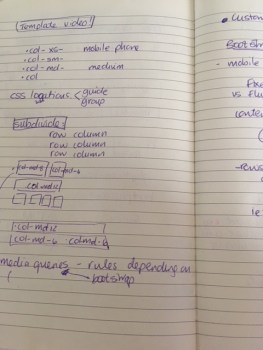 Template video
.col-xs- mobile phone
.col-sm-
.col-md- medium
.col
css locations < guide
group
subdivide
row column
row column
row column
col-md-6 col-md-6
col-md-12
col-md-12
col-md-6 colmd-6
media queries - rules depending on
bootstrap
Bootstrap
- mobile
Fixe
vs flu
conte